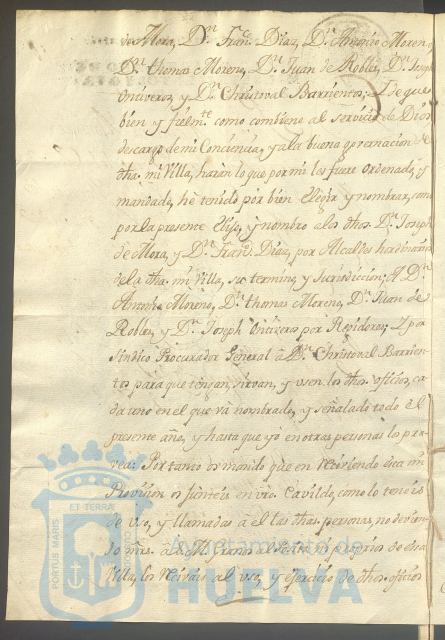 de Mora, Dn. Franco. Diaz, Dn. Antonio Moreno,
Dn. thomas Moreno, Dn. Juan de Robles, Dn. Joseph
Ontiveros, y Dn. Christoval Barrientos; I de que
bien y fielmte. como combiene al servicio de Dios
descargo de mi Conciencia, y a la buena governacion de
dha. mi Villa, haràn lo que por mi les fuere ordenado, y
mandado, hè tenido por bien elegir y nombrar, como
por la presente elijo, y nombro a los dhos. Dn. Joseph
de Mora, y Dn. Franco. Diaz, por Alcaldes hordinarios
de la dha. mi Villa, su termino, y Jurisdiccion; A Dn.
Antonio Moreno, Dn. thomas Moreno, Dn. Juan de
Robles, y Dn. Joseph Ontiveros por Regidores; I por
Sindico Procurador General à Dn. Christoval Barrien-
tos para que tengan, sirvan, y usen los dhos. oficios, ca-
da uno en el que và nombrado, y señalado todo el
presente año, y hasta que yo en otras personas los pro-
vea: Por tanto os mando que en reciviendo esta mi
Provision os junteis en vro. Cavildo, como lo teneis
de uso, y llamadas à el las dhas. personas, no
de esa
Villa, los recivais al uso, y exercicio de dhos. oficios
PORTUS MARIS
ET TERRAE
Ayuntamiento de
HUELVA